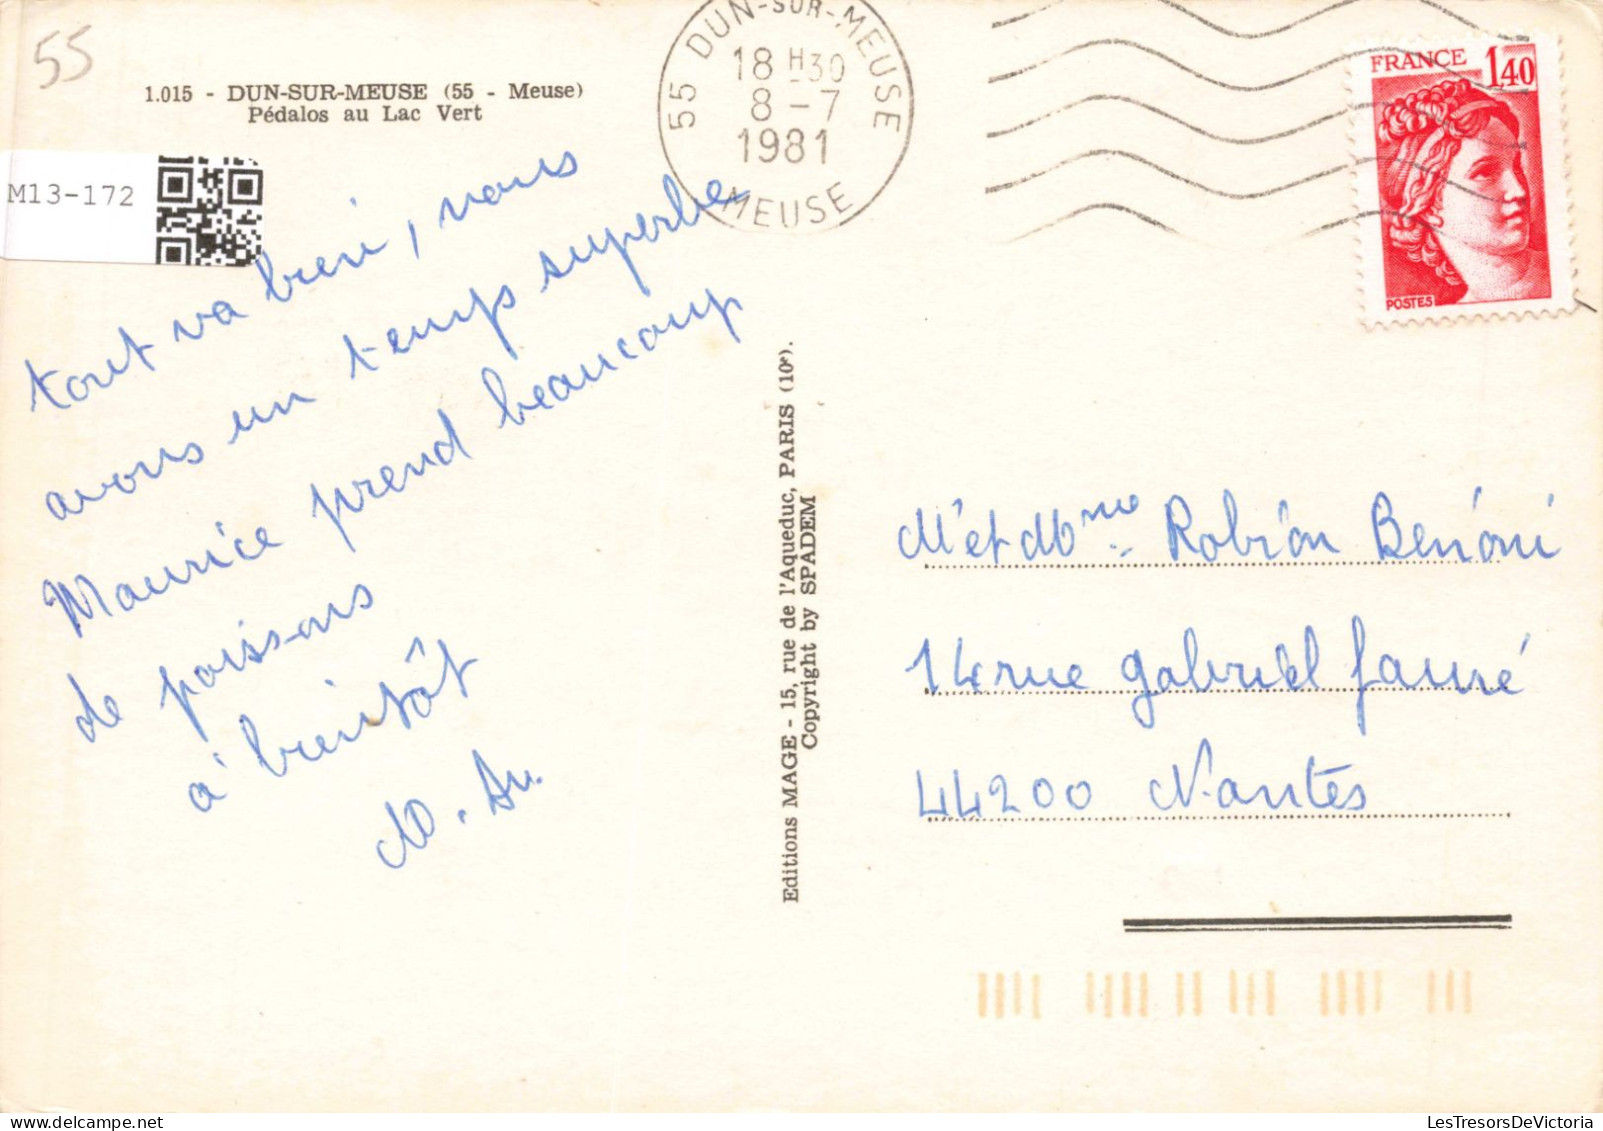 55
1.015 - DUN-SUR-MEUSE (55 - Meuse)
Pédalos au Lac Vert
M13-172
55 DUN-SUR-MEUSE
18 H30
8 - 7
1981
MEUSE
FRANCE 1,40
POSTES
tout va bien, nous
avons un temps superbe
Maurice prend beaucoup
de poissons
à bientôt
Editions MAGE - 15, rue de l'Aqueduc, PARIS (10e).
Copyright by SPADEM
Mr et Mme Robion Benoni
14 rue gabriel fauré
44200 Nantes
LesTresorsDeVictoria